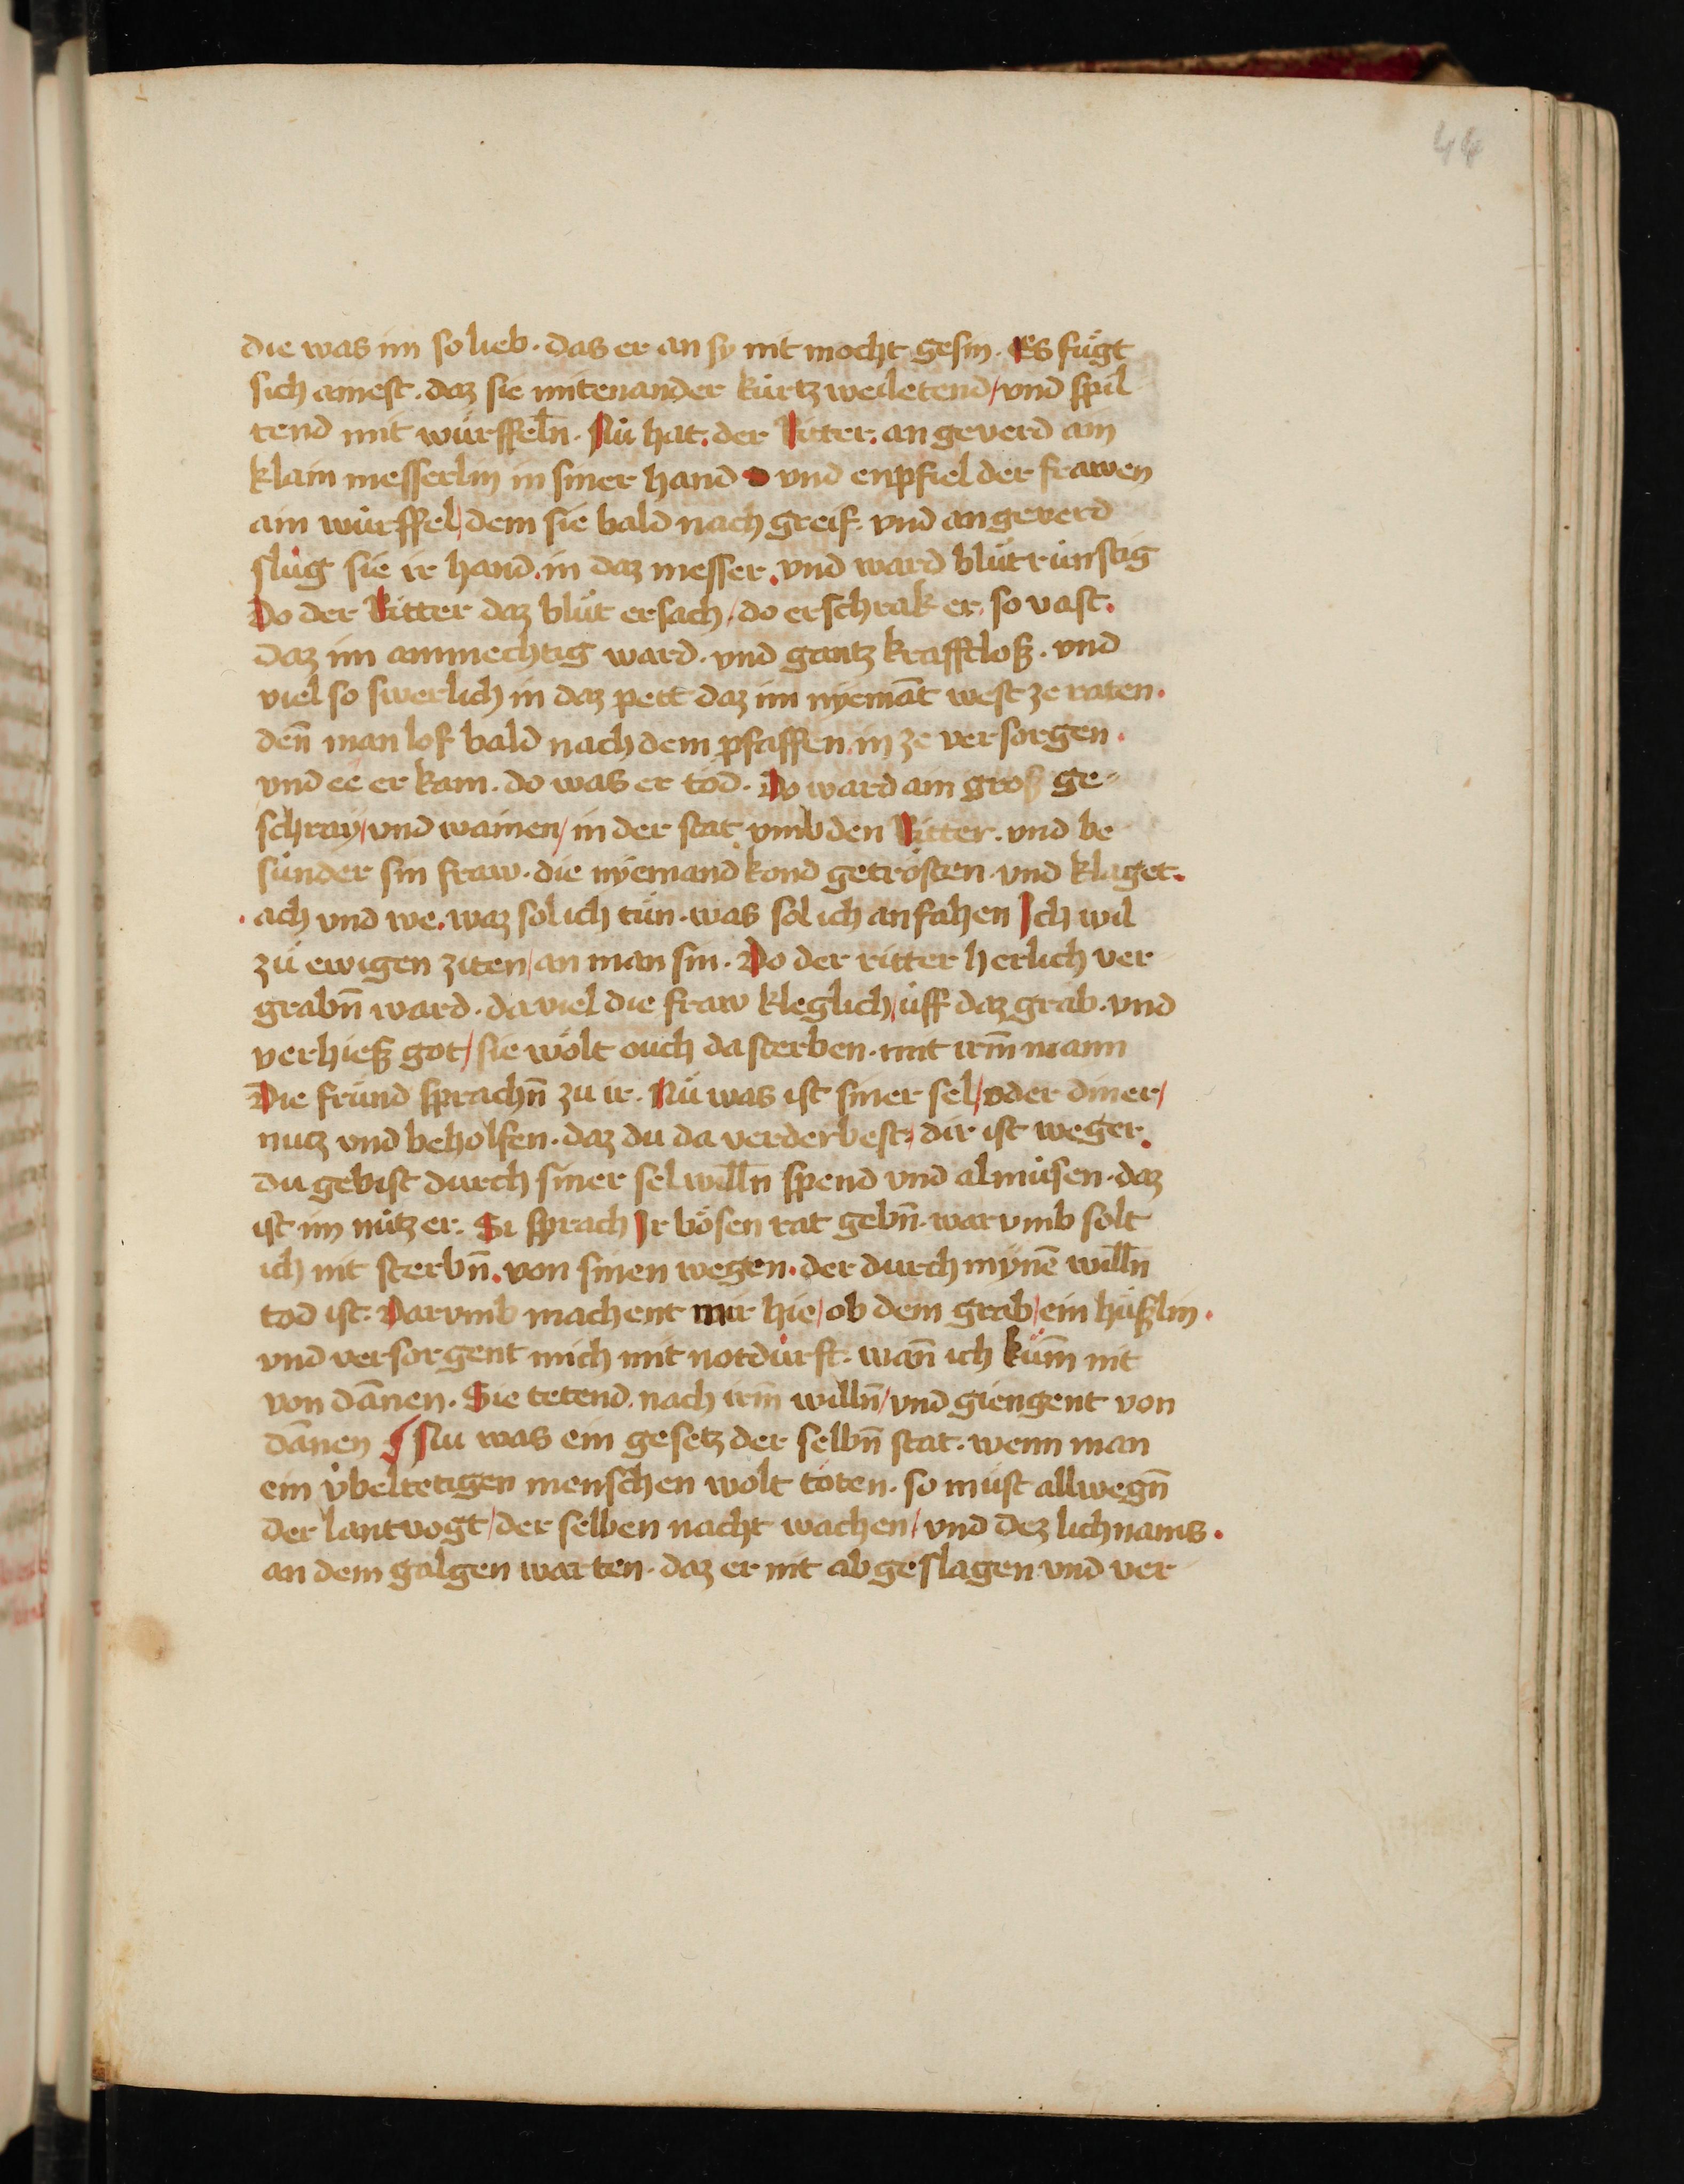 44
die was im so lieb · das er an sy nit mocht gesin · Es fuͤgt
sich ainest · daz sie mitenander kurtzweiletend / vnd spil
tend mit wurffeln̄ · Nu̇ hat · der Ritter · an geverd ain
klain messerlin in siner hand vnd enpfiel der frawen
ain wu̇rffel / dem sie bald nach greif · vnd an geverd
slu̇g sie ir hand · in daz messer · vnd ward blu̇tru̇nstig
Do der Ritter daz blu̇t ersach / do erschrak er · so vast ·
daz im ammechtig ward · vnd gantz krafftloß · vnd
viel so swerlich in daz pett daz im nyemāt west ze raten ·
den̄ man lof bald nach dem pfaffen in ze versorgen ·
vnd ee er kam · do was er tod · Do ward ain groß ge-
schray / vnd wainen / in der stat · vmb den Ritter · vnd be
su̇nder sin fraw · die nyemand kond getrösten · vnd klaget ·
· ach vnd we · waz sol ich tu̇n · was sol ich anfahen Ich wil
zu̇ ewigen ziten / an man sin · Do der ritter herlich ver
grabn̄ ward · da viel die fraw kleglich / uff daz grab · vnd
verhieß got / sie wölt ouch da sterben · mit irm̄ mann
Die fru̇nd sprachn̄ zu ir · Nu̇ was ist siner sel / oder diner /
nutz vnd beholfen · daz du da verderbest / dir ist weger ·
du gebist durch siner sel willn̄ spend vnd almu̇sen · daz
ist im nu̇tzer · Si sprach Ir bösen rat gebn̄ · warvmb solt
ich nit sterbn̄ · von sinen wegen · der durch mynē willn̄
tod ist · Darvmb machent mir hie / ob dem grab / ein hu̇ßlin ·
vnd versorgent mich mit notdurft · wan̄ ich ku̇m̄ nit
von dānen · Sie tetend · nach irm̄ willn̄ / vnd giengent von
dānen ¶ Nu was ein gesetz der selbn̄ stat · wenn man
ein v̇beltetigen menschen wölt töten · so mu̇st allwegn̄
der lantvogt / der selben nacht wachen / vnd dez lichnams ·
an dem galgen warten · daz er nit abgeslagen vnd ver